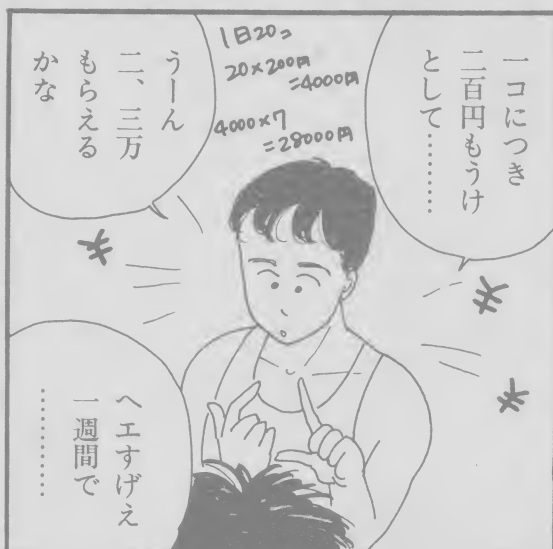 一コにつき
二百円もうけ
として………
1日20コ
20×200円
=4000円
4000×7
=28000円
うーん
二、三万
もらえる
かな
ヘエすげえ
一週間で
…………
¥
¥
¥